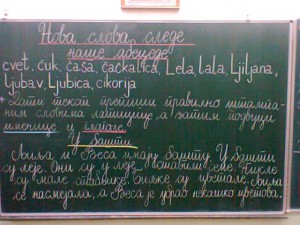 Нова слова, следе
наше абецеде
cvet, čuk, čaša, čačkalica, Lela, lala, Ljiljana,
ljubav, Ljubica, cikorija
текст препиши правилно штампа-
ним словима латинице, а затим подвуци
именице и глаголе.
У башти
Љиља и Веса имају башту. У башти
су леје. Они су у леје ставили семе. Никле
су мале стабљике. Биљке су цветале. Љиља
се насмејала, а Веса је убрао неколико цветова.